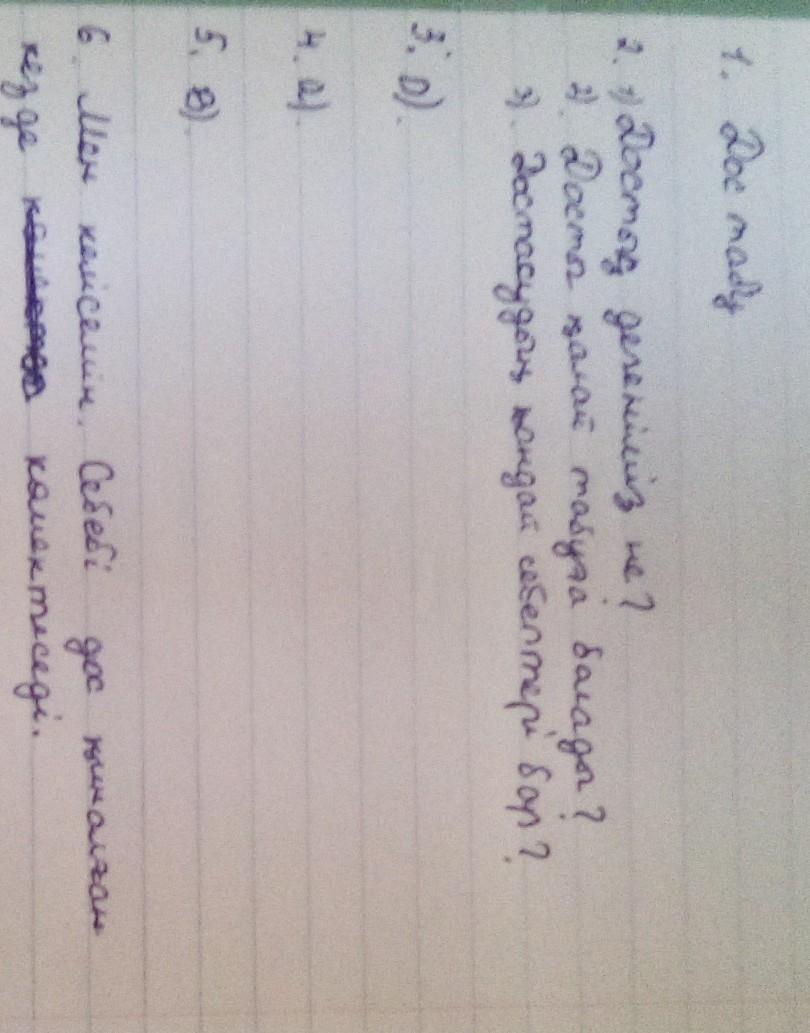 1. Дос табу
2. 1) Достық дегеніміз не?
2). Досты қалай табуға болады?
3). Достасудың қандай себептері бар?
3. D).
4. a).
5. B).
6. Мен келісемін. Себебі дос қиналған
кезде көмектеседі.